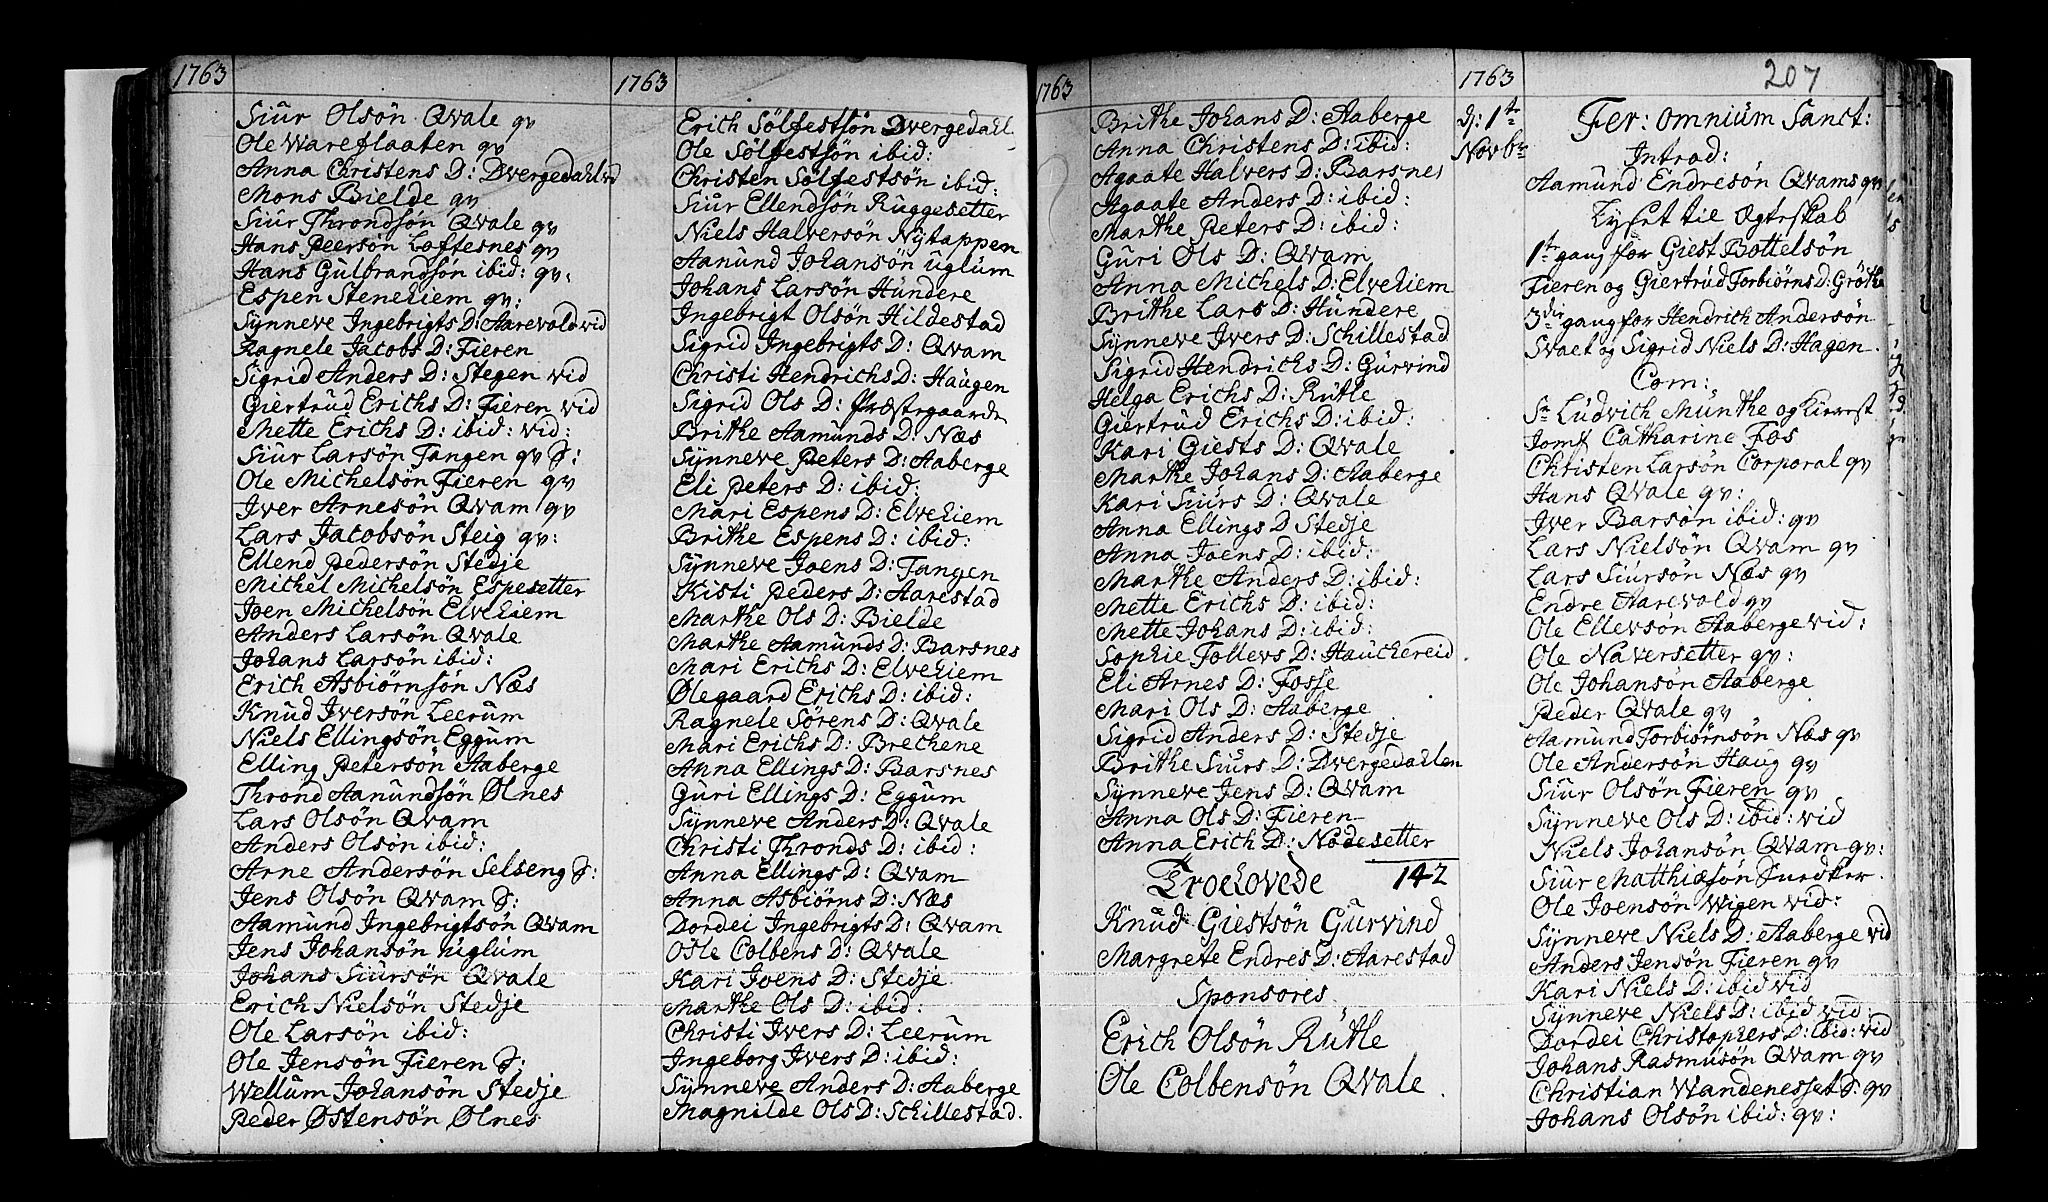 1763
Siur Olsön Qvale qv
Ole Wareflaaten qv
Anna Christens D: Dvergedahl vid
Mons Bielde qv
Siur Throndsön Qvale qv
Hans Peersön Loftesnes qv
Hans Gulbrandsön ibid: qv:
Espen Stenehiem qv:
Synneve Ingebrigts D: Aarevold vid
Ragnele Jacobs D: Fieren
Sigrid Anders D: Stegen vid
Giertrud Erichs D: Fieren vid
Mette Erichs D: ibid: vid:
Siur Larsön Tangen qv S:
Ole Michelsön Fieren qv
Iver Arnesön Qvam qv
Lars Jacobsön Steig qv:
Ellend Pedersön Stedje
Michel Michelsön Espesetter
Joen Michelsön Elvehiem
Anders Larsön Qvale
Johans Larsön ibid:
Erich Asbiörnsön Næs
Knud Iversön Leerum
Niels Ellingsön Eggum
Elling Petersön Aaberge
Thrond Aamundsön Ølnes
Lars Olsön Qvam
Anders Olsön ibid:
Arne Andersön Selseng S:
Jens Olsön Qvam S:
Aamund Ingebrigtsön Qvam
Jens Johansön Uglum
Johans Siursön Qvale
Erich Nielsön Stedje
Ole Larsön ibid:
Ole Jensön Fieren S:
Wellum Johansön Stedje
Peder Østensön Ølnes
1763
Erich Sölfestsön Dvergedahl
Ole Sölfestsön ibid:
Christen Sölfestsön ibid:
Siur Ellendsön Ruggesetter
Niels Halversön Nytappen
Aamund Johansön Uglum
Johans Larsön Hundere
Ingebrigt Olsön Hildestad
Sigrid Ingebrigts D: Qvam
Christi Hendrichs D: Haugen
Sigrid Ols D: Præstegaarden
Brithe Aamunds D: Næs
Synneve Peters D: Aaberge
Eli Peters D: ibid:
Mari Espens D: Elvehiem
Brithe Espens D: ibid:
Synneve Joens D: Tangen
Kisti Peders D: Aarestad
Marthe Ols D: Bielde
Marthe Aamunds D: Barsnes
Mari Erichs D: Elvehiem
Ølegaard Erichs D: ibid:
Ragnele Sörens D: Qvale
Mari Erichs D: Brechene
Anna Ellings D: Barsnes
Guri Ellings D: Eggum
Synneve Anders D: Qvale
Christi Thronds D: ibid:
Anna Ellings D: Qvam
Anna Asbiörns D: Næs
Dordei Ingebrigts D: Qvam
Osle Colbens D: Qvale
Kari Joens D: Stedje
Marthe Ols D: ibid:
Christi Ivers D: Leerum
Ingeborg Ivers D: ibid:
Synneve Anders D: Aaberge
Magnilde Ols D: Schillestad.
1763
Brithe Johans D: Aaberge
Anna Christens D: ibid:
Agaate Halvers D: Barsnes
Agaate Anders D: ibid:
Marthe Peters D: ibid:
Guri Ols D: Qvam
Anna Michels D: Elvehiem
Brithe Lars D: Hundere
Synneve Ivers D: Schillestad
Sigrid Hendrichs D: Gurvind
Helga Erichs D: Rutle
Giertrud Erichs D: ibid:
Kari Giests D: Qvale
Marthe Johans D: Aaberge
Kari Siurs D: Qvale
Anna Ellings D Stedje
Anna Joens D: ibid:
Marthe Anders D: ibid:
Mette Erichs D: ibid:
Mette Johans D: ibid:
Sophie Tollevs D: Hauchereid
Eli Arnes D: Fosse
Mari Ols D: Aaberge
Sigrid Anders D: Stedje
Brithe Siurs D: Dvergedahlen
Synneve Jens D: Qvam
Anna Ols D: Fieren
Anna Erich D: Nødesetter
Trolovede 142
Knud Giestsön Gurvind
Margrete Endres D: Aarestad
Sponsores.
Erich Olsön Rutle
Ole Colbensön Qvale.
1763
207
D: 1te
Novbr
Fer: omnium Sanct:
Introd:
Aamund Endresön Qvams qv
Lyset til Ægteskab
1te gang for Giest Bottelsön
Fieren og Giertrud Torbiörns D: Gröthe
3die gang for Hendrich Andersön
Svaet og Sigrid Niels D: Hagen
Com:
Sr Ludvich Munthe og Kierest
Jomf Catharine Fos
Christen Larsön Corporal qv
Hans Qvale qv:
Iver Barsön ibid: qv
Lars Nielsön Qvam qv
Lars Siursön Næs qv
Endre Aarevold qv
Ole Ellevsön Aaberge vid:
Ole Naversetter qv:
Ole Johansön Aaberge
Peder Qvale qv
Aamund Torbiörnsön Næs qv
Ole Andersön Haug qv
Siur Olsön Fieren qv
Synneve Ols D: ibid: vid
Niels Johansön Qvam qv:
Siur Matthiæsön Snedker
Ole Joensön Wigen vid:
Synneve Niels D: Aaberge vid
Anders Jensön Fieren qv
Kari Niels D: ibid vid
Synneve Niels D: ibid vid:
Dordei Christophers D: ibid: vid
Johans Rasmusön Qvam qv
Christian Wandenesset S: qv
Johans Olsön ibid: qv: